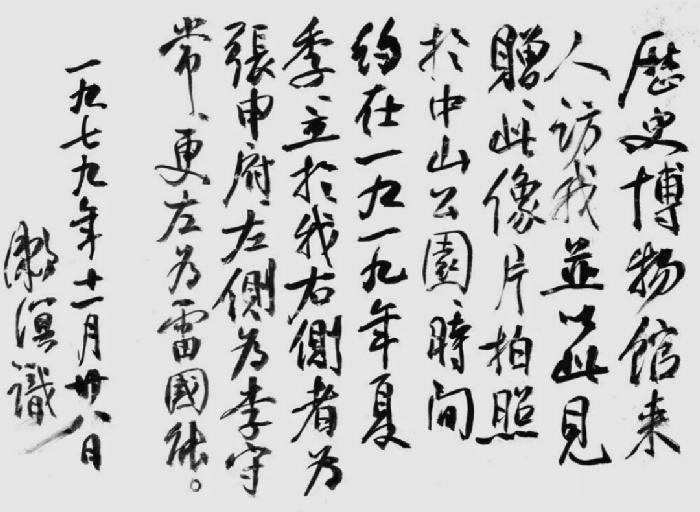 歷史博物館来
人訪我並以此見
贈、此像片拍照
於中山公園、時间
約在一九一九年夏
季、立於我右側者为
張申府、左側为李守
常、更左为雷國能。
一九七九年十一月廿八日
漱溟識